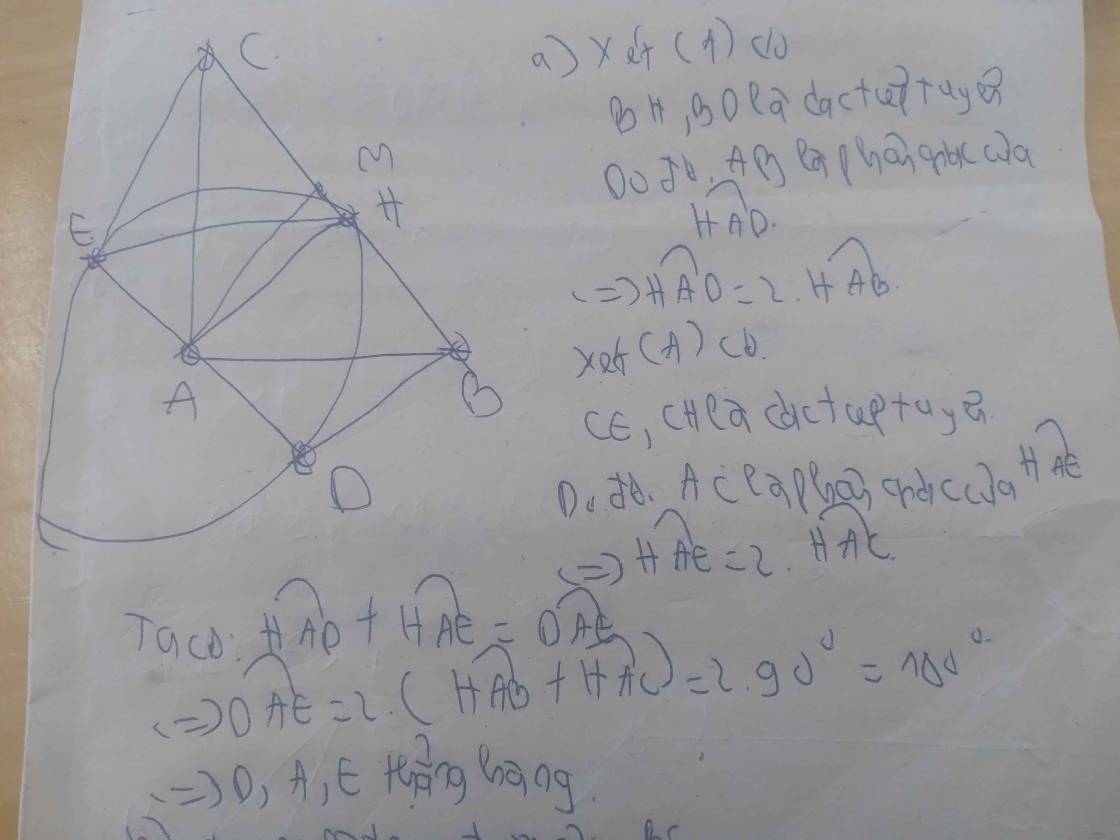 C
M
H
E
A
B
D
a) Xét (A) có
BH, BD là các tiếp tuyến
Do đó. AB là phân giác của
HAD.
<=> HAD = 2. HAB.
Xét (A) có.
CE, CH là các tiếp tuyến
Do đó. AC là phân giác của HAE
<=> HAE = 2. HAC.
Ta có: HAD + HAE = DAE
<=> DAE = 2. (HAB + HAC) = 2. 90° = 180°.
<=> D, A, E thẳng hàng.
b)